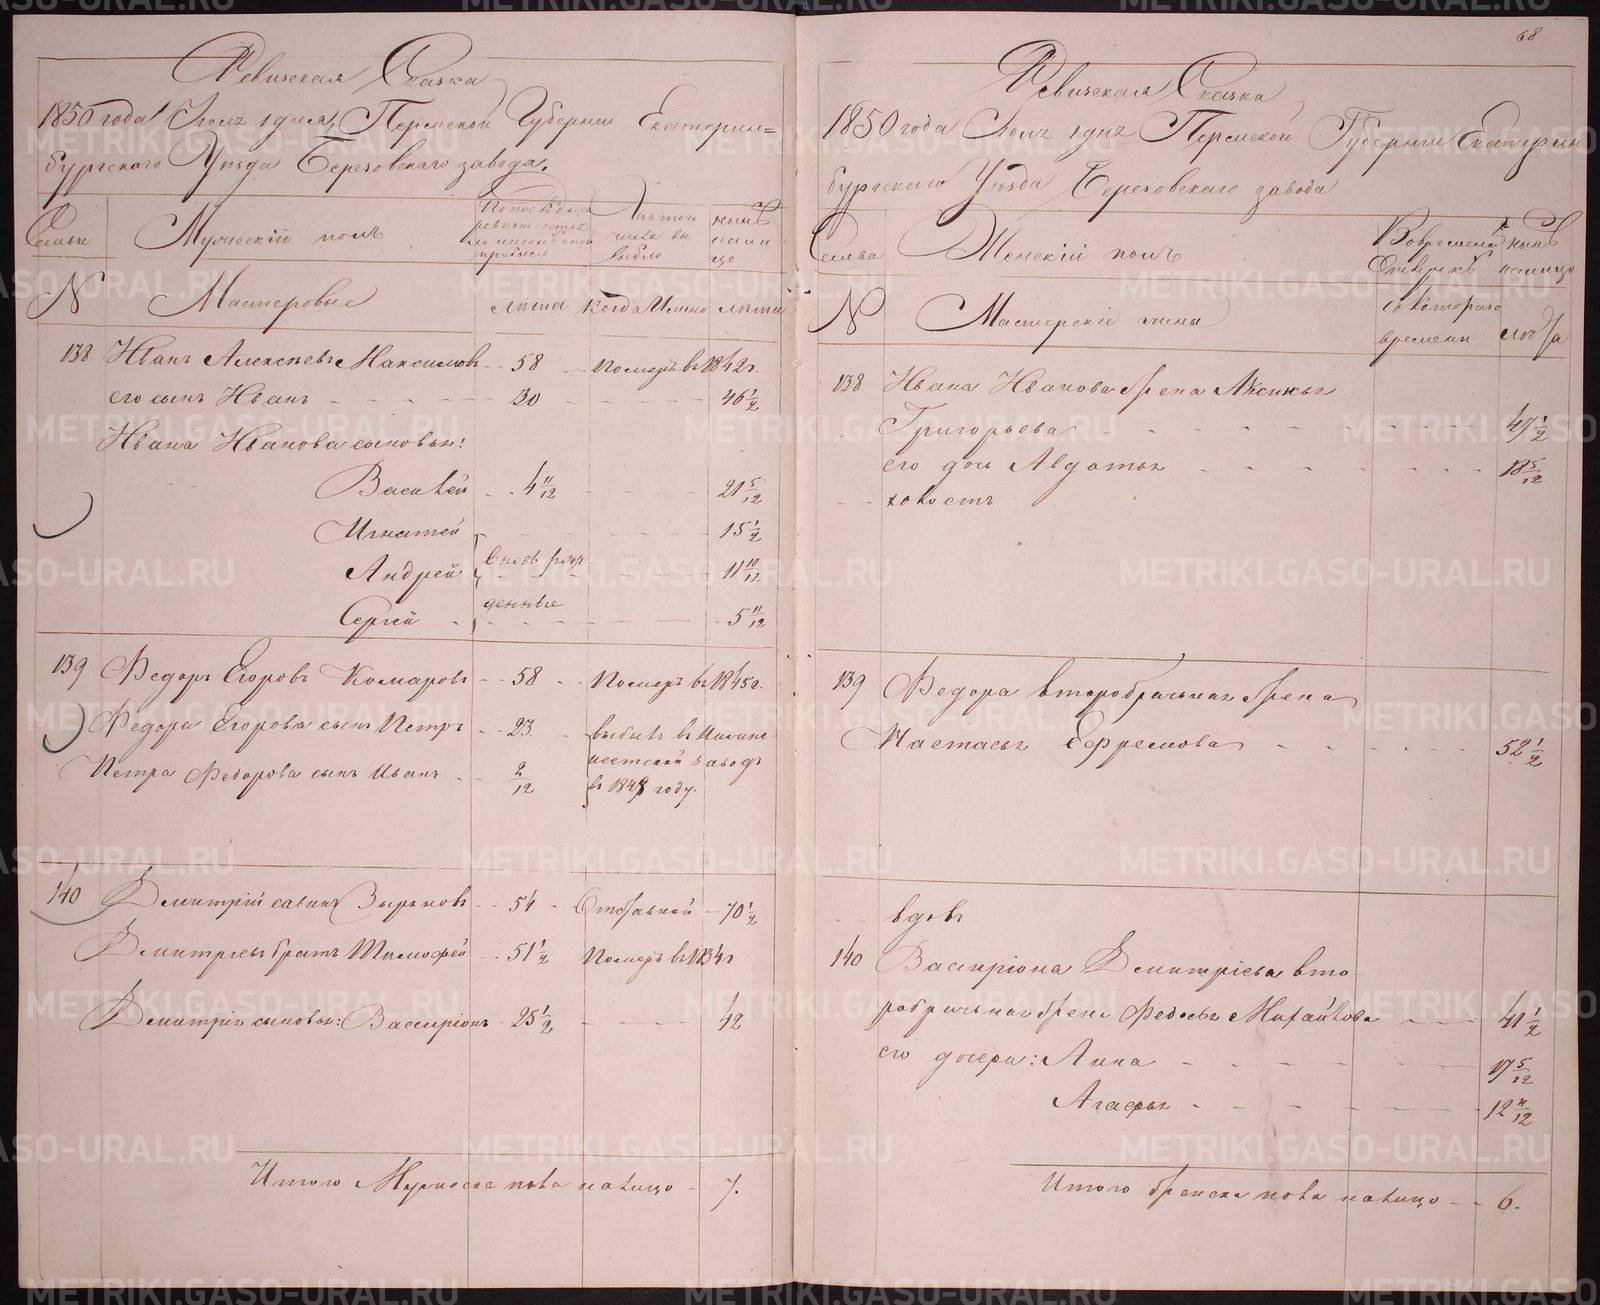 Ревизская Сказка
1850 года Июля 1 дня, Пермской Губернии Екатерин=
бургского Уѣзда Березовскаго завода.
Семьи
Мужескій полъ
По последней
ревизіи состояло и послѣ оной
прибыло
Изъ того
числа вы
было
Нынѣ
нали
цо
№
Мастеровые
лѣта
Когда Имено
лѣта
138 Иванъ Алексѣевъ Максимовъ - - 58 - Померъ въ 1842 г.
его сынъ Иванъ - - - - - 30 - - - - 46 1/2
Ивана Иванова сыновья:
Василей - - 4 11/12 - - - - 21 5/12
Игнатей - - - - 15 1/2
Андрей вновь рож - - - 11 10/12
Сергей денные - - - 5 11/12
139 Федоръ Егоровъ Комаровъ - - 58 - - Померъ въ 1845 г.
Федора Егорова сынъ Петръ - - 23 - выбылъ в Нижне
Петра Федорова сынъ Иванъ - - 2/12
исетской заводъ
въ 1848 году.
140 Дмитрій Савинъ Зыряновъ - - 54 - Отставной - 70 1/2
Дмитрiевъ братъ Тимофей - - 51 1/2 Померъ въ 1834 г
Дмитрія сыновья: Вассиріонъ - 25 1/2 - - - 42
Итого Мужеска пола налицо - 7.
68
Ревизская Сказка
1850 года Июля 1 дня Пермской Губерніи Екатерин
бургскаго Уѣзда Березовскаго завода
Семьи
Женскій полъ
Во временной
Отлучкѣ
Нынѣ
налицо
№
Мастерскіе жены
съ котораго
времени
лѣта
138 Ивана Иванова жена Аксинья
Григорьева - - - - - 47 1/2
его дочь Авдотья - - - - - 18 5/12
холостъ
139 Федора второбрачная жена
Настасья Ефремова - - - - - 52 1/2
вдовъ
140 Вассиріона Дмитріева вто
робрачная жена Федосья Михайлова - - - 41 1/2
его дочери: Анна - - - - - 17 5/12
Агафья - - - - - 12 4/12
Итого женска пола налицо - - 6.
METRIKI.GASO-URAL.RU